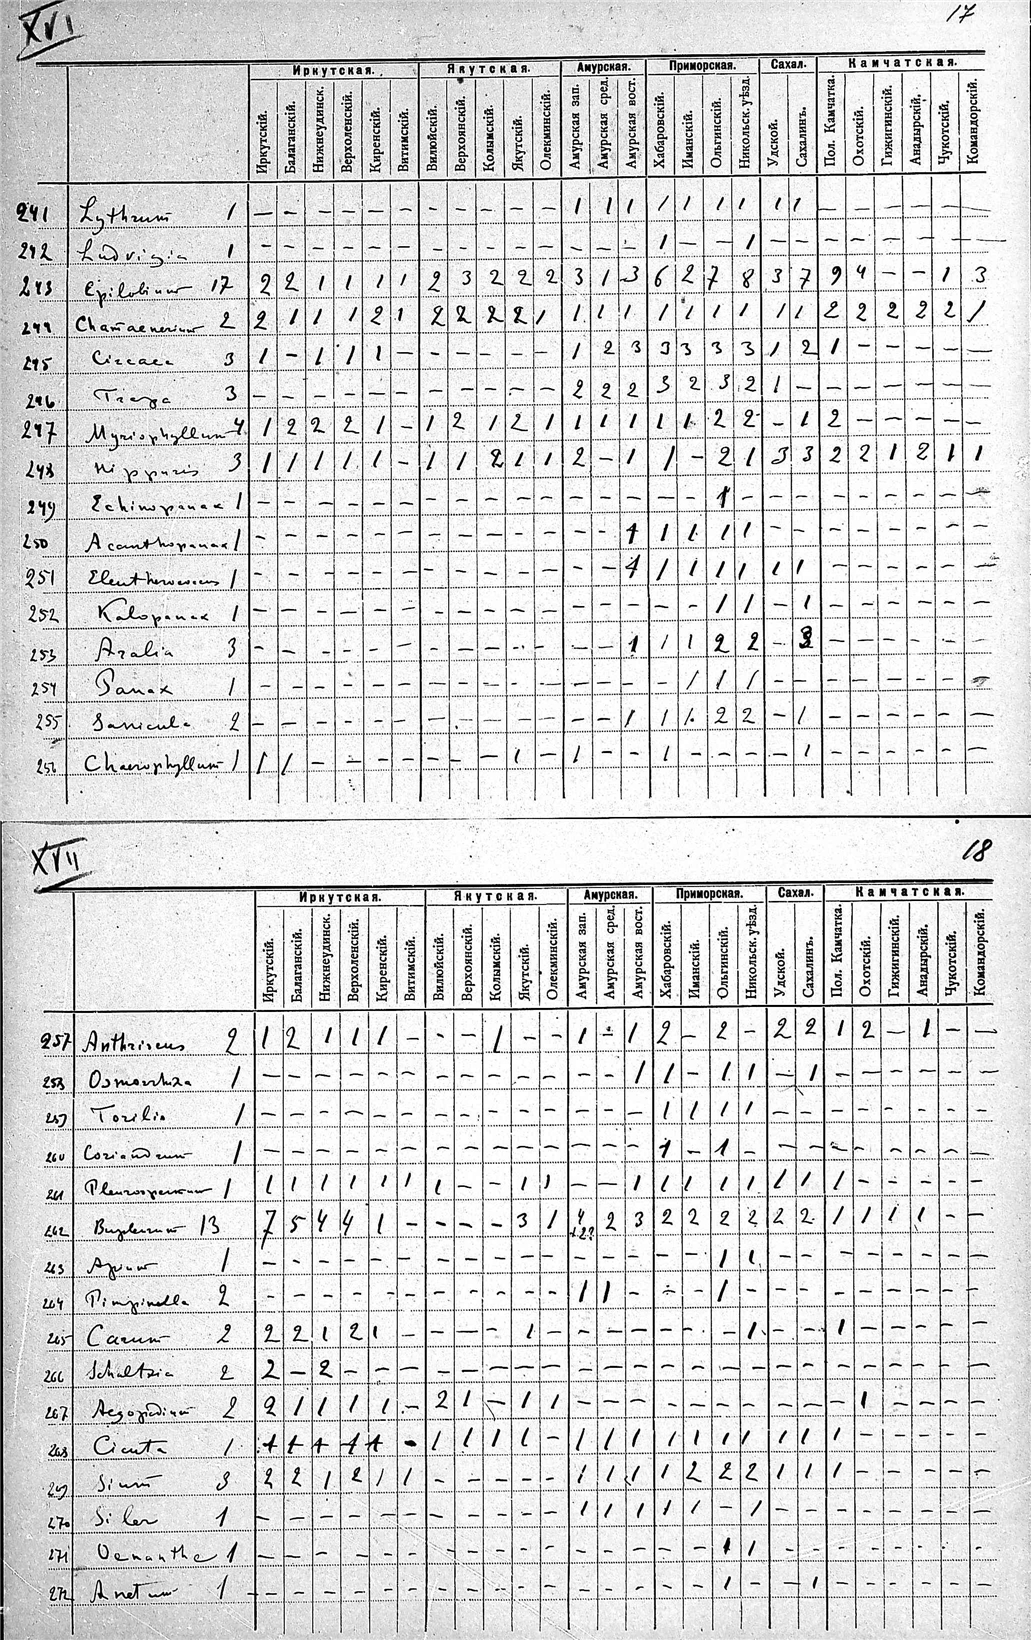 XVI 17
Иркутская. Якутская. Амурская. Приморская. Сахал. Камчатская.
Иркутскій. Балаганскій. Нижнеудинск. Верхоленскій. Киренскій. Витимскій. Вилюйскій. Верхоянскій. Колымскій. Якутскій. Олекминскій. Амурская зап. Амурская сред. Амурская вост. Хабаровскій. Иманскій. Ольгинскій. Никольск. уѣзд. Удской. Сахалинъ. Пол. Камчатка. Охотскій. Гижигинскій. Анадырскій. Чукотскій. Командорскій.
241 Lythrum 1 – – – – – – – – – – – 1 1 1 1 1 1 1 1 1 – – – – – –
242 Ludvigia 1 – – – – – – – – – – – – – – 1 – – 1 – – – – – – – –
243 Epilobium 17 2 2 1 1 1 1 2 3 2 2 2 3 1 3 6 2 7 8 3 7 9 4 – – 1 3
244 Chamaenerium 2 2 1 1 1 2 1 2 2 2 2 1 1 1 1 1 1 1 1 1 1 2 2 2 2 2 1
245 Circaea 3 1 – 1 1 1 – – – – – – 1 2 3 3 3 3 3 1 2 1 – – – – –
246 Trapa 3 – – – – – – – – – – – 2 2 2 3 2 3 2 1 – – – – – – –
247 Myriophyllum 4 1 2 2 2 1 – 1 2 1 2 1 1 1 1 1 1 2 2 – 1 2 – – – – –
248 Hippuris 3 1 1 1 1 1 – 1 1 2 1 1 2 – 1 1 – 2 1 3 3 2 2 1 2 1 1
249 Echinopanax 1 – – – – – – – – – – – – – – – – 1 – – – – – – – – –
250 Acanthopanax 1 – – – – – – – – – – – – – 1 1 1 1 1 – – – – – – – –
251 Eleutherococcus 1 – – – – – – – – – – – – – 1 1 1 1 1 1 1 – – – – – –
252 Kalopanax 1 – – – – – – – – – – – – – – – – 1 1 – 1 – – – – – –
253 Aralia 3 – – – – – – – – – – – – – 1 1 1 2 2 – 3 – – – – – –
254 Panax 1 – – – – – – – – – – – – – – – 1 1 1 – – – – – – – –
255 Sanicula 2 – – – – – – – – – – – – – 1 1 1 2 2 – 1 – – – – – –
256 Chaerophyllum 1 1 1 – – – – – – – 1 – 1 – – 1 – – – – 1 – – – – – –
XVII 18
Иркутская. Якутская. Амурская. Приморская. Сахал. Камчатская.
Иркутскій. Балаганскій. Нижнеудинск. Верхоленскій. Киренскій. Витимскій. Вилюйскій. Верхоянскій. Колымскій. Якутскій. Олекминскій. Амурская зап. Амурская сред. Амурская вост. Хабаровскій. Иманскій. Ольгинскій. Никольск. уѣзд. Удской. Сахалинъ. Пол. Камчатка. Охотскій. Гижигинскій. Анадырскій. Чукотскій. Командорскій.
257 Anthriscus 2 1 2 1 1 1 – – – 1 – – 1 – 1 2 – 2 – 2 2 1 2 – 1 – –
258 Osmorrhiza 1 – – – – – – – – – – – – – 1 1 – 1 1 – 1 – – – – – –
259 Torilis 1 – – – – – – – – – – – – – – 1 1 1 1 – – – – – – – –
260 Coriandrum 1 – – – – – – – – – – – – – – 1 – 1 – – – – – – – – –
261 Pleurospermum 1 1 1 1 1 1 1 1 – – 1 1 – – 1 1 1 1 1 1 1 1 – – – – –
262 Bupleurum 13 7 5 4 4 1 – – – – 3 1 4 +2? 2 3 2 2 2 2 2 2 1 1 1 1 – –
263 Apium 1 – – – – – – – – – – – – – – – – 1 1 – – – – – – – –
264 Pimpinella 2 – – – – – – – – – – – 1 1 – – – 1 – – – – – – – – –
265 Carum 2 2 2 1 2 1 – – – – 1 – – – – – – – 1 – – 1 – – – – –
266 Schultzia 2 2 – 2 – – – – – – – – – – – – – – – – – – – – – – –
267 Aegopodium 2 2 1 1 1 1 – 2 1 – 1 1 – – – – – – – – – – 1 – – – –
268 Cicuta 1 1 1 1 1 1 – 1 1 1 1 – 1 1 1 1 1 1 1 1 1 1 – – – – –
269 Sium 3 2 2 1 2 1 1 – – – – – 1 1 1 1 2 2 2 1 1 1 – – – – –
270 Siler 1 – – – – – – – – – – – 1 1 1 1 1 – 1 – – – – – – – –
271 Oenanthe 1 – – – – – – – – – – – – – – – – 1 1 – – – – – – – –
272 Anetum 1 – – – – – – – – – – – – – – – – 1 – – 1 – – – – – –